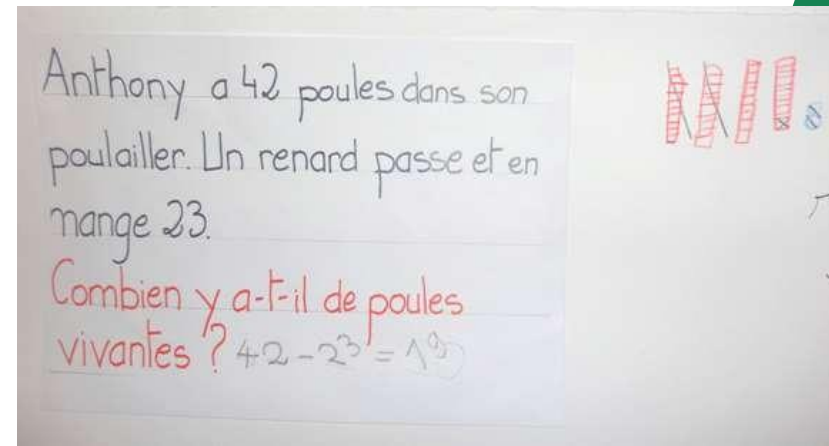 Anthony a 42 poules dans son
poulailler. Un renard passe et en
mange 23.
Combien y a-t-il de poules
vivantes ? 42 - 23 = 19